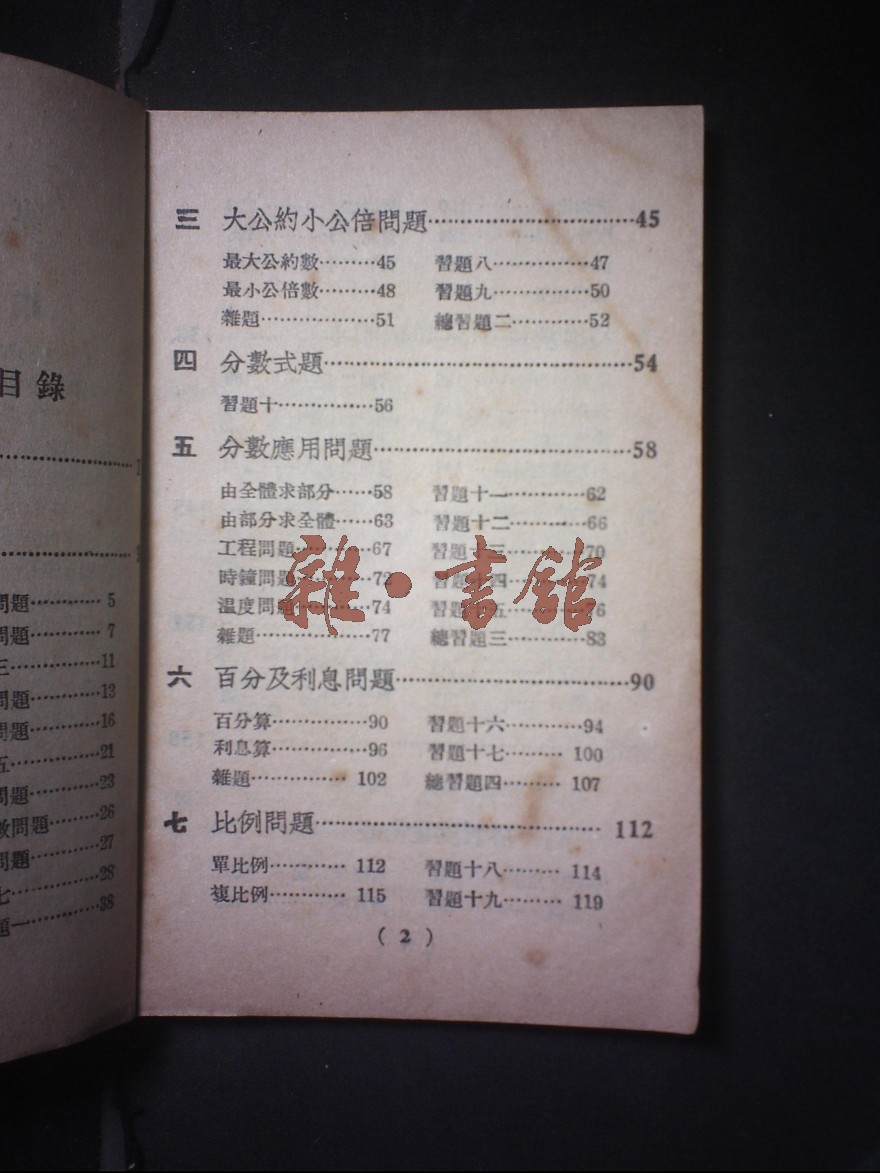 目錄
問題………… 5
問題………… 7
三………………11
問題…………13
問題…………16
五………………21
問題…………23
數問題………26
問題…………27
七………………28
題一…………38
三 大公約小公倍問題……………………………45
最大公約數………45 習題八……………47
最小公倍數………48 習題九……………50
雜題………………51 總習題二…………52
四 分數式題……………………………………………54
習題十……………56
五 分數應用問題………………………………………58
由全體求部分……58 習題十一…………62
由部分求全體……63 習題十二…………66
工程問題…………67 習題十三…………70
時鐘問題…………72 習題十四…………74
溫度問題…………74 習題十五…………76
雜題………………77 總習題三…………83
六 百分及利息問題……………………………………90
百分算……………90 習題十六…………94
利息算……………96 習題十七……… 100
雜題…………… 102 總習題四……… 107
七 比例問題………………………………………… 112
單比例………… 112 習題十八……… 114
複比例………… 115 習題十九……… 119
( 2 )
雜·書館